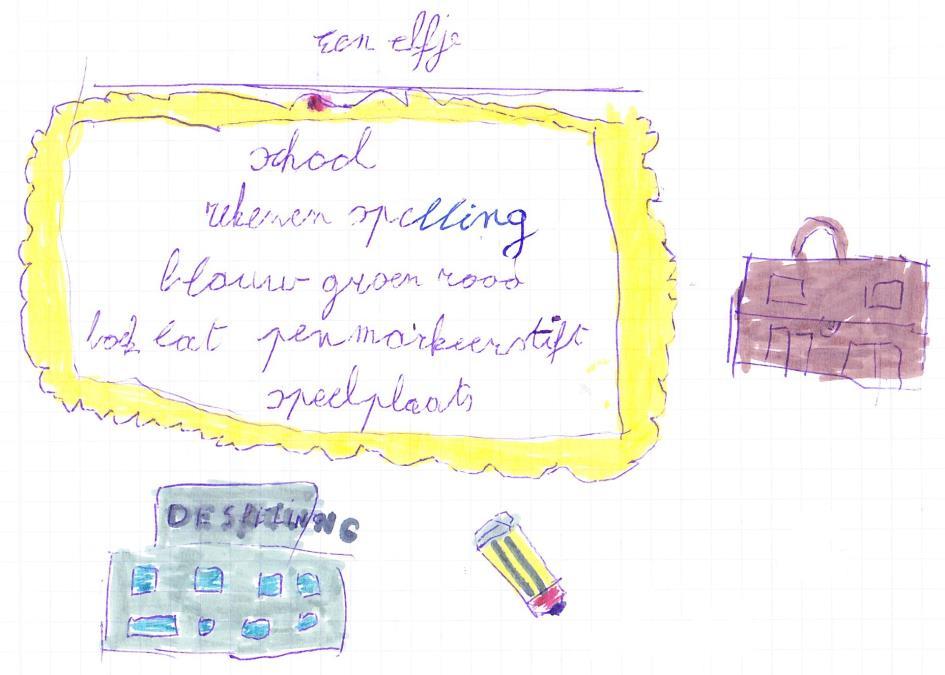 Een elfje
school
rekenen spelling
blauw groen rood
pen markeerstift
speelplaats